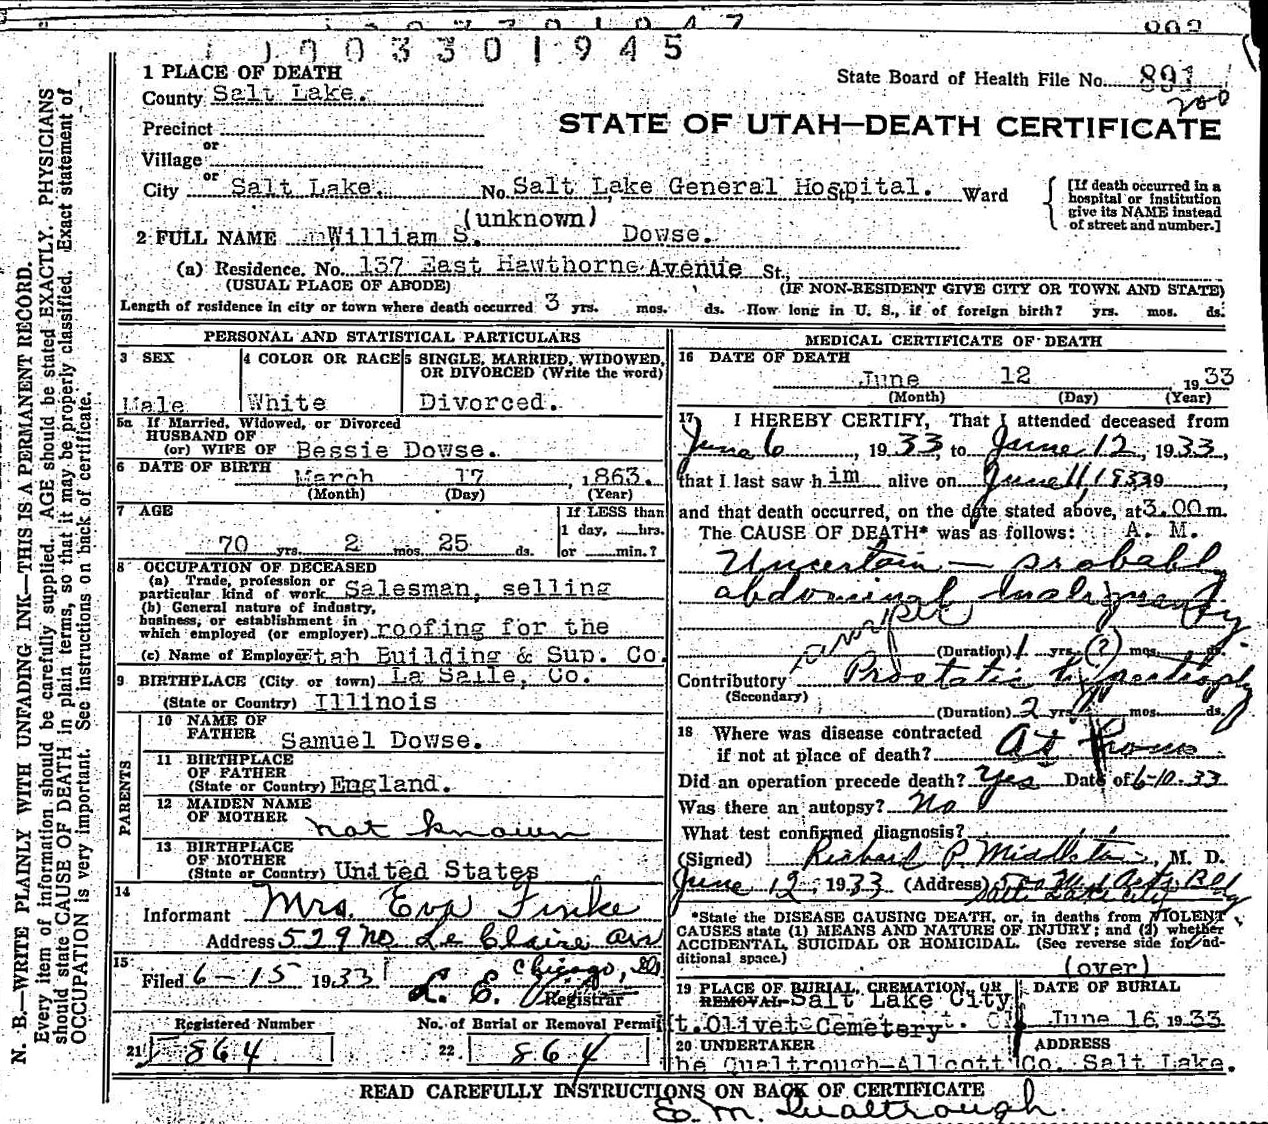 1 0 0 3 3 0 1 9 4 5
State Board of Health File No. 891
200
1 PLACE OF DEATH
County Salt Lake.
STATE OF UTAH—DEATH CERTIFICATE
Precinct
or
Village
or
City Salt Lake. No. Salt Lake General Hospital. St., Ward
[If death occurred in a
hospital or institution
give its NAME instead
of street and number.]
(unknown)
2 FULL NAME William S. Dowse.
(a) Residence. No. 137 East Hawthorne Avenue St.,
(USUAL PLACE OF ABODE) (IF NON-RESIDENT GIVE CITY OR TOWN AND STATE)
Length of residence in city or town where death occurred 3 yrs. mos. ds. How long in U. S., if of foreign birth? yrs. mos. ds.
PERSONAL AND STATISTICAL PARTICULARS
3 SEX
Male
4 COLOR OR RACE
White
5 SINGLE, MARRIED, WIDOWED,
OR DIVORCED (Write the word)
Divorced.
5a If Married, Widowed, or Divorced
HUSBAND OF
(or) WIFE OF Bessie Dowse.
6 DATE OF BIRTH March 17, 1863.
(Month) (Day) (Year)
7 AGE
70 yrs. 2 mos. 25 ds.
If LESS than
1 day, hrs.
or min.?
8 OCCUPATION OF DECEASED
(a) Trade, profession or
particular kind of work Salesman, selling
(b) General nature of industry,
business, or establishment in
which employed (or employer) roofing for the
(c) Name of Employer Utah Building & Sup. Co.
9 BIRTHPLACE (City or town) La Salle, Co.
(State or Country) Illinois
PARENTS
10 NAME OF
FATHER Samuel Dowse.
11 BIRTHPLACE
OF FATHER
(State or Country) England.
12 MAIDEN NAME
OF MOTHER not known
13 BIRTHPLACE
OF MOTHER
(State or Country) United States
14
Informant Mrs. Eva Finke
Address 529 No Le Claire Ave
Chicago, Ills
15
Filed 6-15 1933 L. E.
Registrar
Registered Number
21 864
No. of Burial or Removal Permit
22 864
MEDICAL CERTIFICATE OF DEATH
16 DATE OF DEATH
June 12 1933
(Month) (Day) (Year)
17 I HEREBY CERTIFY, That I attended deceased from
June 6, 1933, to June 12, 1933,
that I last saw him alive on June 11, 1933 19,
and that death occurred, on the date stated above, at 3.00 m.
The CAUSE OF DEATH* was as follows: A. M.
Uncertain — probably
abdominal malignancy
(Duration) 1 yrs. (?) mos. ds.
Contributory Prostatic hypertrophy
(Secondary)
(Duration) 2 yrs. mos. ds.
18 Where was disease contracted
if not at place of death? At home
Did an operation precede death? Yes Date of 6-10-33
Was there an autopsy? No
What test confirmed diagnosis?
(Signed) Richard P. Middleton, M. D.
June 12, 1933 (Address) 500 Med Arts Bldg
Salt Lake City
*State the DISEASE CAUSING DEATH, or, in deaths from VIOLENT
CAUSES state (1) MEANS AND NATURE OF INJURY; and (2) whether
ACCIDENTAL, SUICIDAL OR HOMICIDAL. (See reverse side for additional space.)
(over)
19 PLACE OF BURIAL, CREMATION, OR
REMOVAL Salt Lake City
Mt. Olivet Cemetery
DATE OF BURIAL
June 16, 1933
20 UNDERTAKER ADDRESS
The Qualtrough-Allcott Co. Salt Lake.
READ CAREFULLY INSTRUCTIONS ON BACK OF CERTIFICATE
E. M. Qualtrough.
N. B.—WRITE PLAINLY WITH UNFADING INK—THIS IS A PERMANENT RECORD.
Every item of information should be carefully supplied. AGE should be stated EXACTLY. PHYSICIANS
should state CAUSE OF DEATH in plain terms, so that it may be properly classified. Exact statement of
OCCUPATION is very important. See instructions on back of certificate.